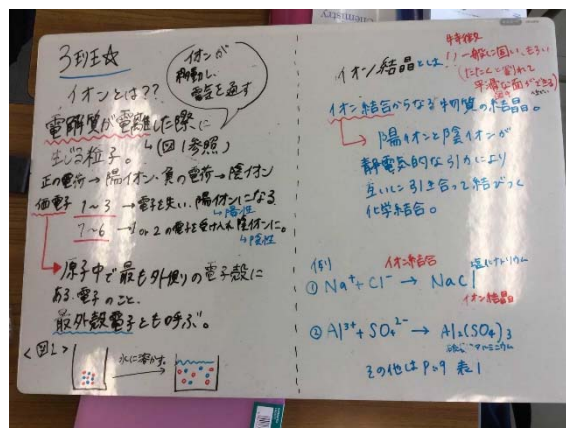 Chemistry
3班☆
イオンが
移動し、
電気を通す
イオンとは??
電解質が電離した際に
生じる粒子。
(図1参照)
正の電荷→陽イオン・負の電荷→陰イオン
価電子 1~3 →電子を失い、陽イオンになる
↳陽性
7~6 →1 or 2の電子を受け入れ陰イオンに。
↳陰性
原子中で最も外側の電子殻に
ある電子のこと。
最外殻電子とも呼ぶ。
<図1>
水に溶かす。
イオン結晶とは
特徴
一般に固い、もろい
(たたくと割れて
平滑な面ができる)
イオン結合からなる物質の結晶。
陽イオンと陰イオンが
静電気的な引力により
互いに引き合って結びつく
化学結合。
例) イオン結合 塩化ナトリウム
① Na⁺+Cl⁻ → NaCl
イオン結晶
② Al³⁺+SO₄²⁻ → Al₂(SO₄)₃
硫酸アルミニウム
その他はP29 表1